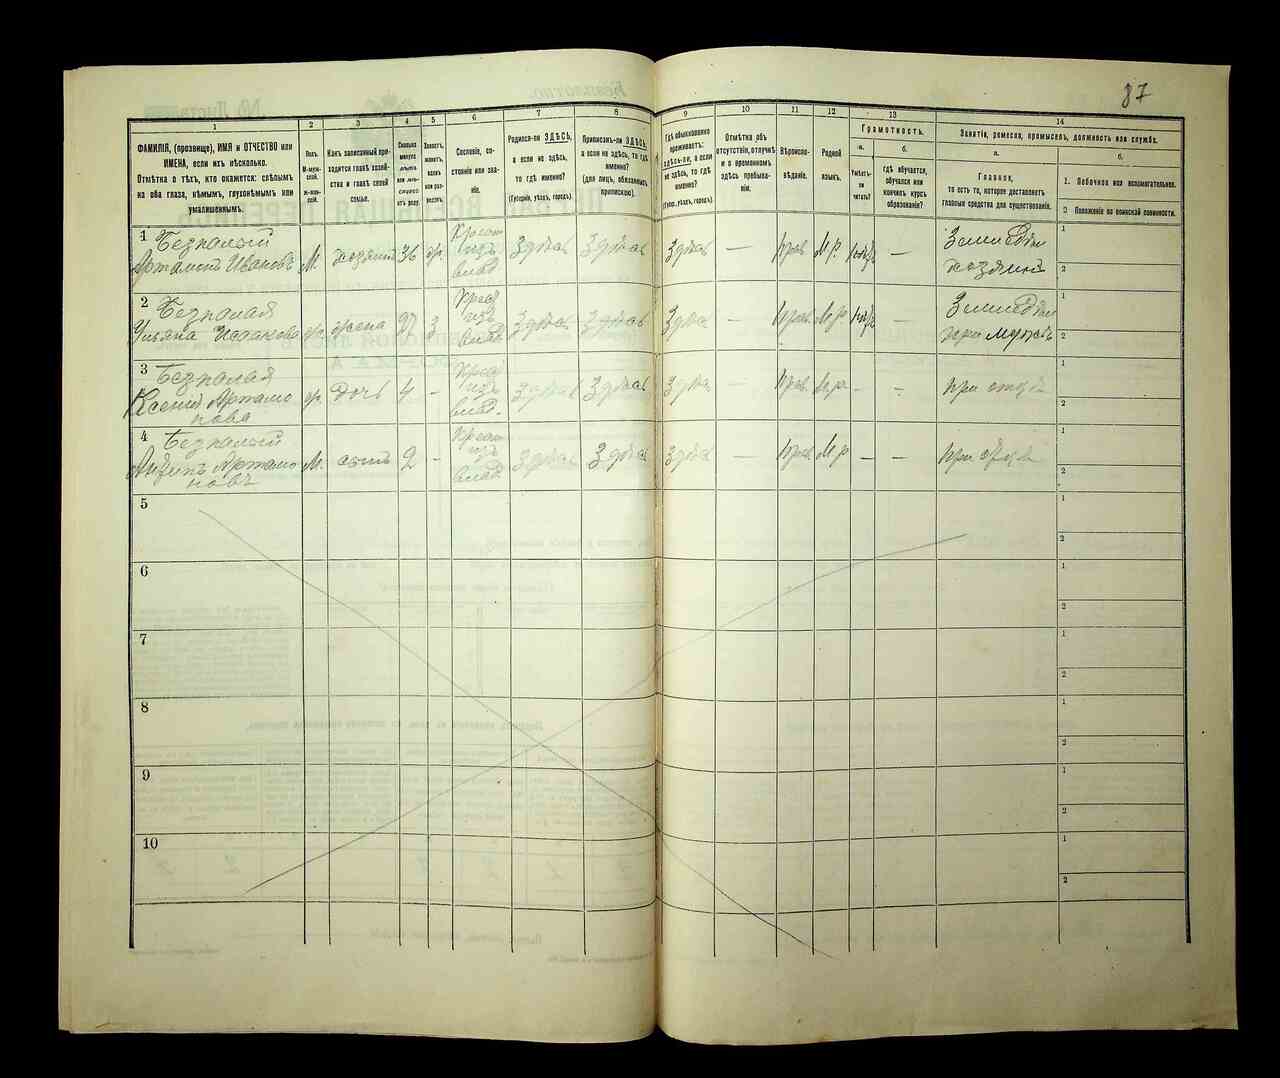 87
1
2
3
4
5
6
7
8
9
10
11
12
13
14
ФАМИЛІЯ, (прозвище), ИМЯ и ОТЧЕСТВО или
ИМЕНА, если ихъ нѣсколько.
Отмѣтка о тѣхъ, кто окажется: слѣпымъ
на оба глаза, нѣмымъ, глухонѣмымъ или
умалишеннымъ.
Полъ.
М-муж-
ской.
ж-жен-
скій.
Какъ записанный при-
ходится главѣ хозяй-
ства и главѣ своей
семьи.
Сколько
минуло
лѣтъ
или мѣ-
сяцевъ
отъ роду.
Холостъ,
женатъ,
вдовъ
или раз-
веденъ.
Сословіе, со-
стояніе или зва-
ніе.
Родился-ли ЗДѢСЬ,
а если не здѣсь,
то гдѣ именно?
(Губернія, уѣздъ, городъ).
Приписанъ-ли ЗДѢСЬ,
а если не здѣсь, то гдѣ
именно?
(для лицъ, обязанныхъ
припискою).
Гдѣ обыкновенно
проживаетъ:
здѣсь-ли, а если
не здѣсь, то гдѣ
именно?
(Губер., уѣздъ, городъ).
Отмѣтка объ
отсутствіи, отлучкѣ
и о временномъ
здѣсь пребыва-
ніи.
Вѣроиспо-
вѣданіе.
Родной
языкъ.
Грамотность.
а.
Умѣетъ-
ли
читать?
б.
гдѣ обучается,
обучался или
кончилъ курсъ
образованія?
Занятіе, ремесло, промыселъ, должность или служба.
а.
Главное,
то есть то, которое доставляетъ
главныя средства для существованія.
б.
1. Побочное или вспомогательное.
2 Положеніе по воинской повинности.
1 Безпалый
Артамонъ Ивановъ М. хозяинъ 36 жр. Крест изъ влад. Здѣсь Здѣсь Здѣсь — Прав. М.р. — Земледѣл хозяинъ 1 2
2 Безпалая
Ульяна Исаакова ж. жена 27 З Крест изъ влад. Здѣсь Здѣсь Здѣсь — Прав. М.р. — Земледѣл при мужѣ 1 2
3 Безпалая
Ксенія Артамо
нова ж. дочь 4 - Крест изъ влад. Здѣсь Здѣсь Здѣсь — Прав. М.р. - - При отцѣ 1 2
4 Безпалый
Артамо
новъ М. сынъ 2 - Крест изъ влад. Здѣсь Здѣсь Здѣсь — Прав. М.р. - - При отцѣ 1 2
5 1 2
6 1 2
7 1 2
8 1 2
9 1 2
10 1 2